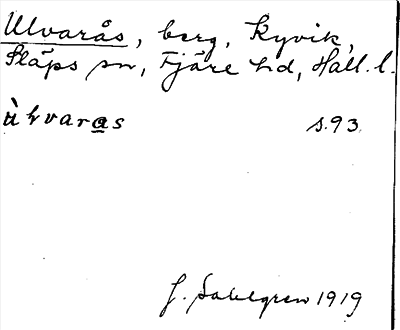 Ulvarås, berg, Kyvik,
Släps sn, Fjäre hd, Hall. l.
ùlvaras s.93.
J. Sahlgren 1919